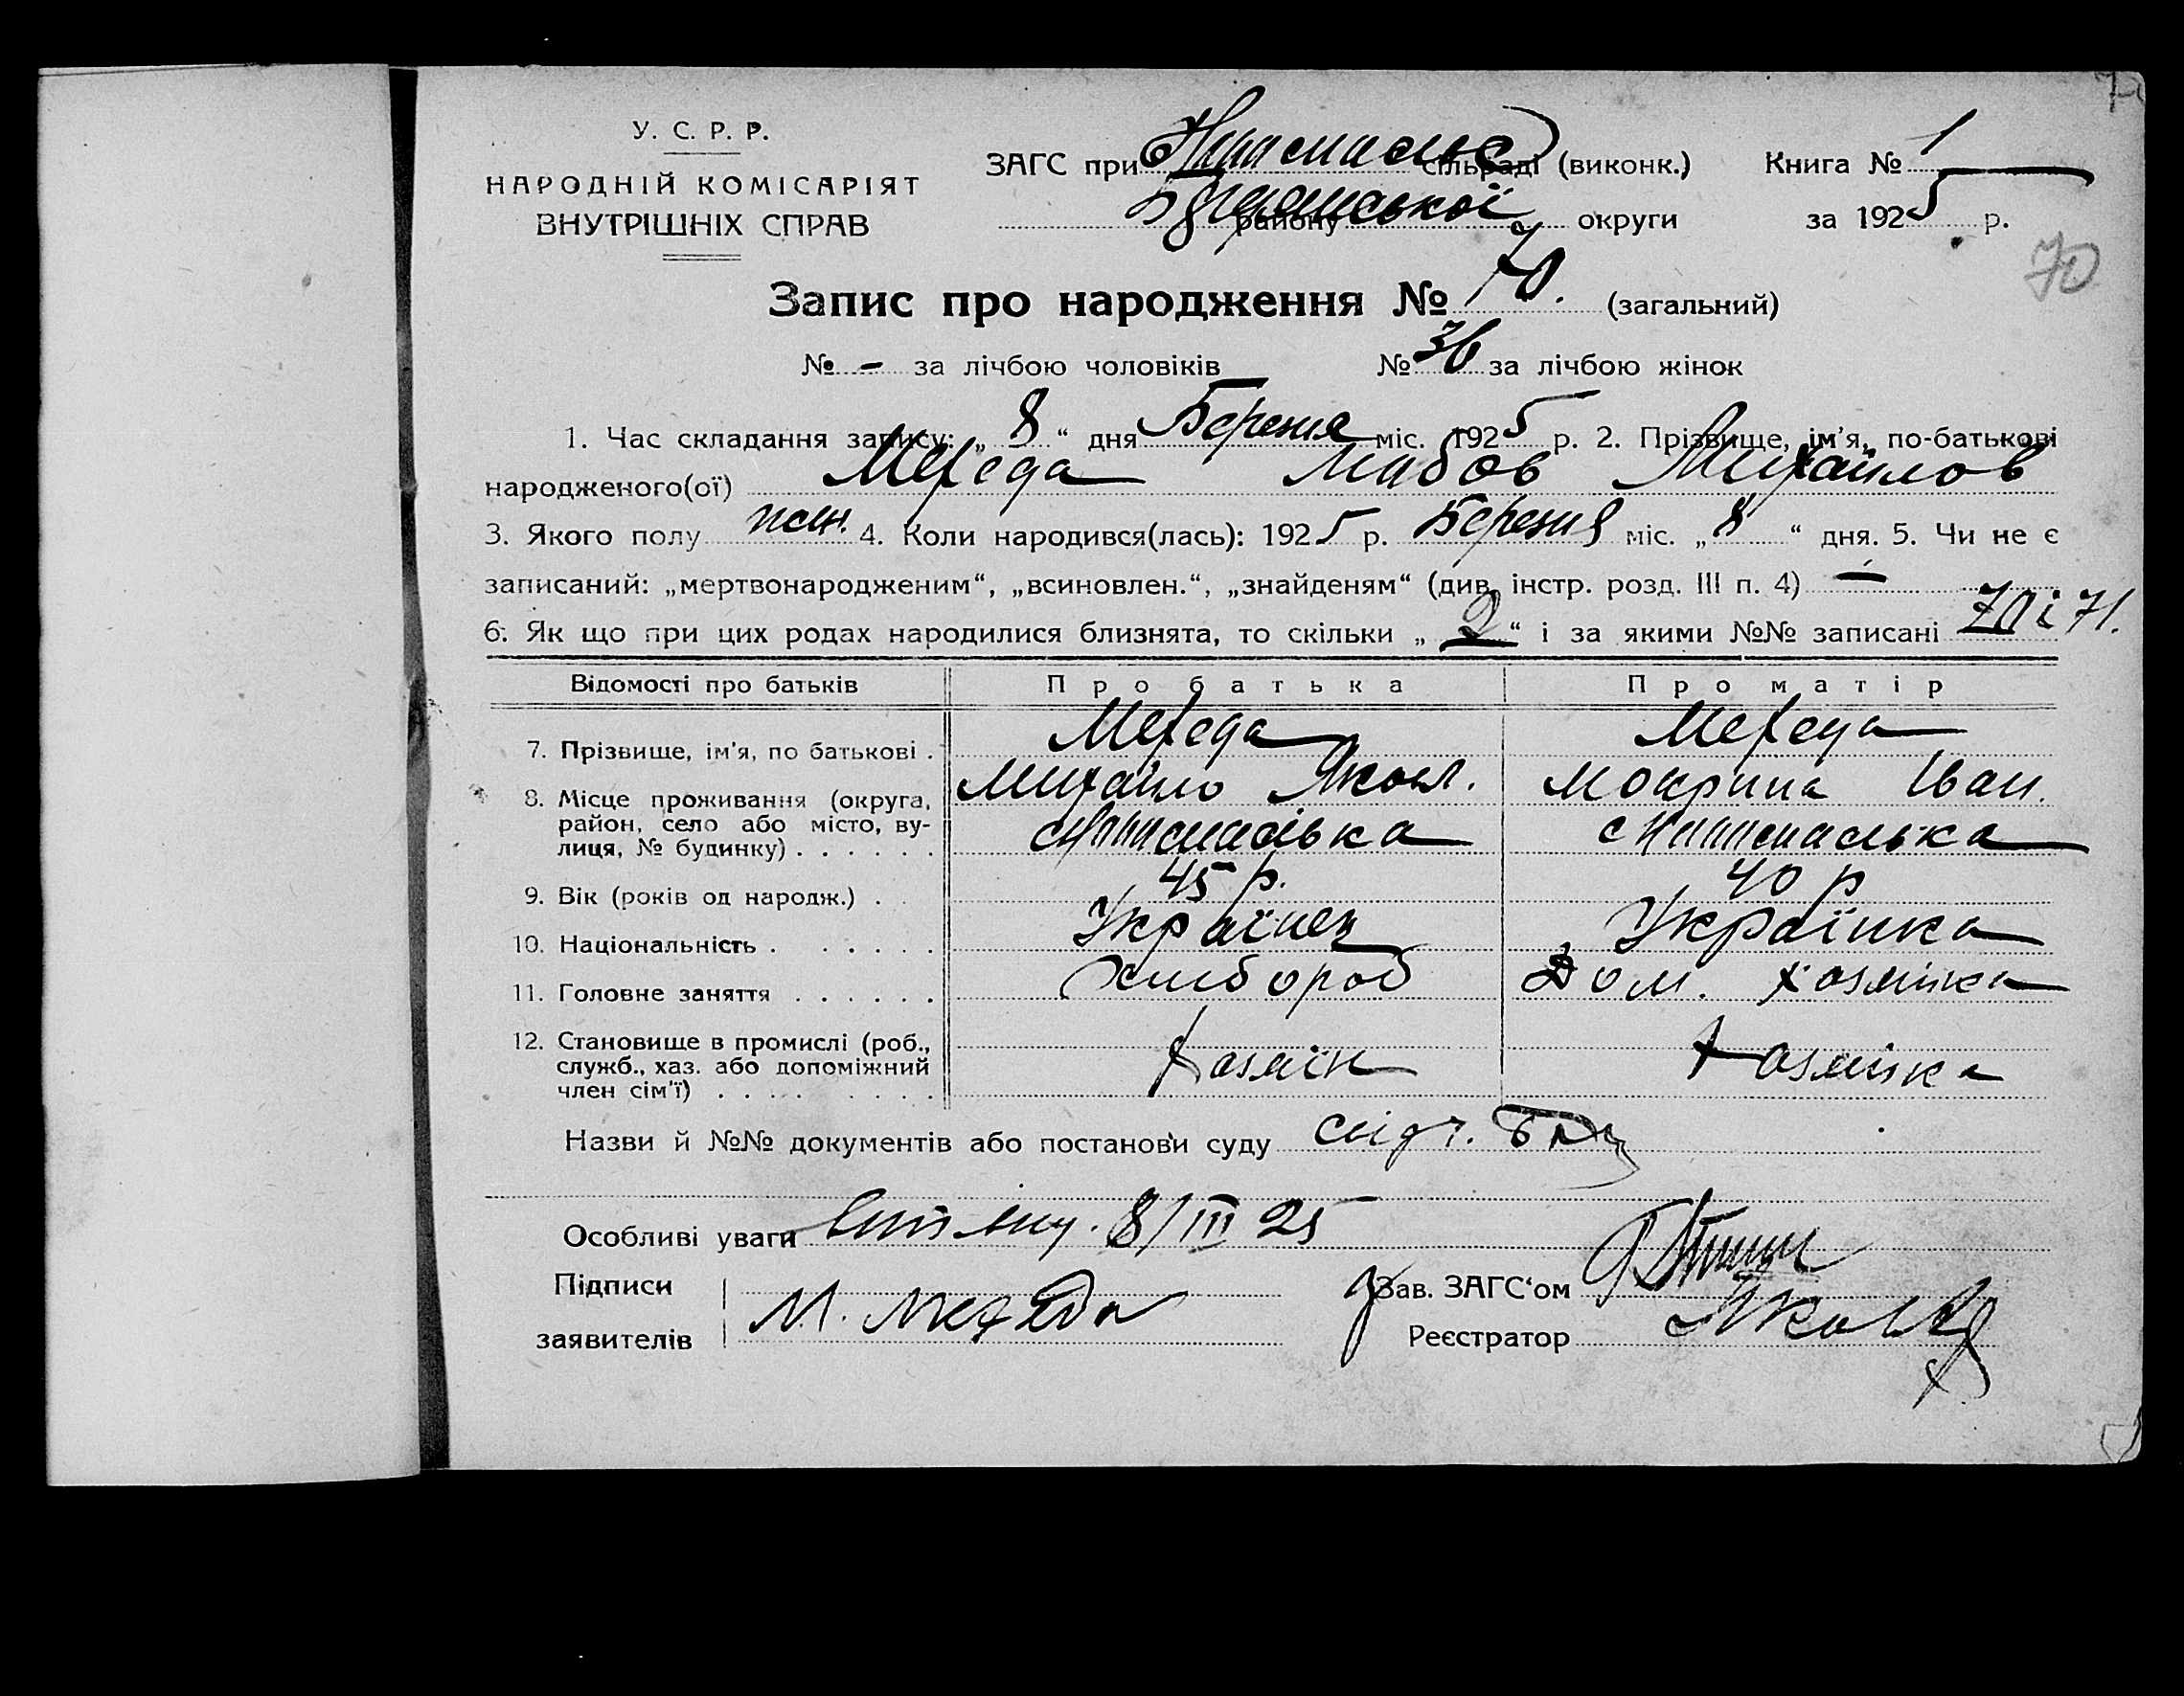 У. С. Р. Р.
НАРОДНІЙ КОМІСАРІЯТ
ВНУТРІШНІХ СПРАВ
ЗАГС при сільраді (виконк.) Книга № 1
району округи за 1925 р.
70
Запис про народження № 70. (загальний)
№ - за лічбою чоловіків № 36 за лічбою жінок
1. Час складання запису: „ 8 “ дня Березня міс. 1925 р. 2. Прізвище, ім’я, по-батькові
народженого(ої) Мехеда Любов Михайлов
3. Якого полу жін. 4. Коли народився(лась): 1925 р. Березня міс. „ 8 “ дня. 5. Чи не є
записаний: „мертвонародженим“, „всиновлен.“, „знайденям“ (див. інстр. розд. III п. 4) —
6. Як що при цих родах народилися близнята, то скільки „ 2 “ і за якими №№ записані 70 і 71.
Відомості про батьків Про батька Про матір
7. Прізвище, ім’я, по батькові . Мехеда Мехеда
Михайло Яковл. Мокрина Іван.
8. Місце проживання (округа,
район, село або місто, ву-
лиця, № будинку) . . . . . .
9. Вік (років од народж.) . 45 р. 40 р
10. Національність . . . . . . Українец Українка
11. Головне заняття . . . . . . Хлибороб Дом. хозяйка
12. Становище в промислі (роб.,
служб., хаз. або допоміжний
член сім’ї) . . . . . . . . Хозяін Хозяйка
Назви й №№ документів або постанови суду
Особливі уваги 8/III 25
Підписи
заявителів М. Мехеда
Зав. ЗАГС‘ом
Реєстратор